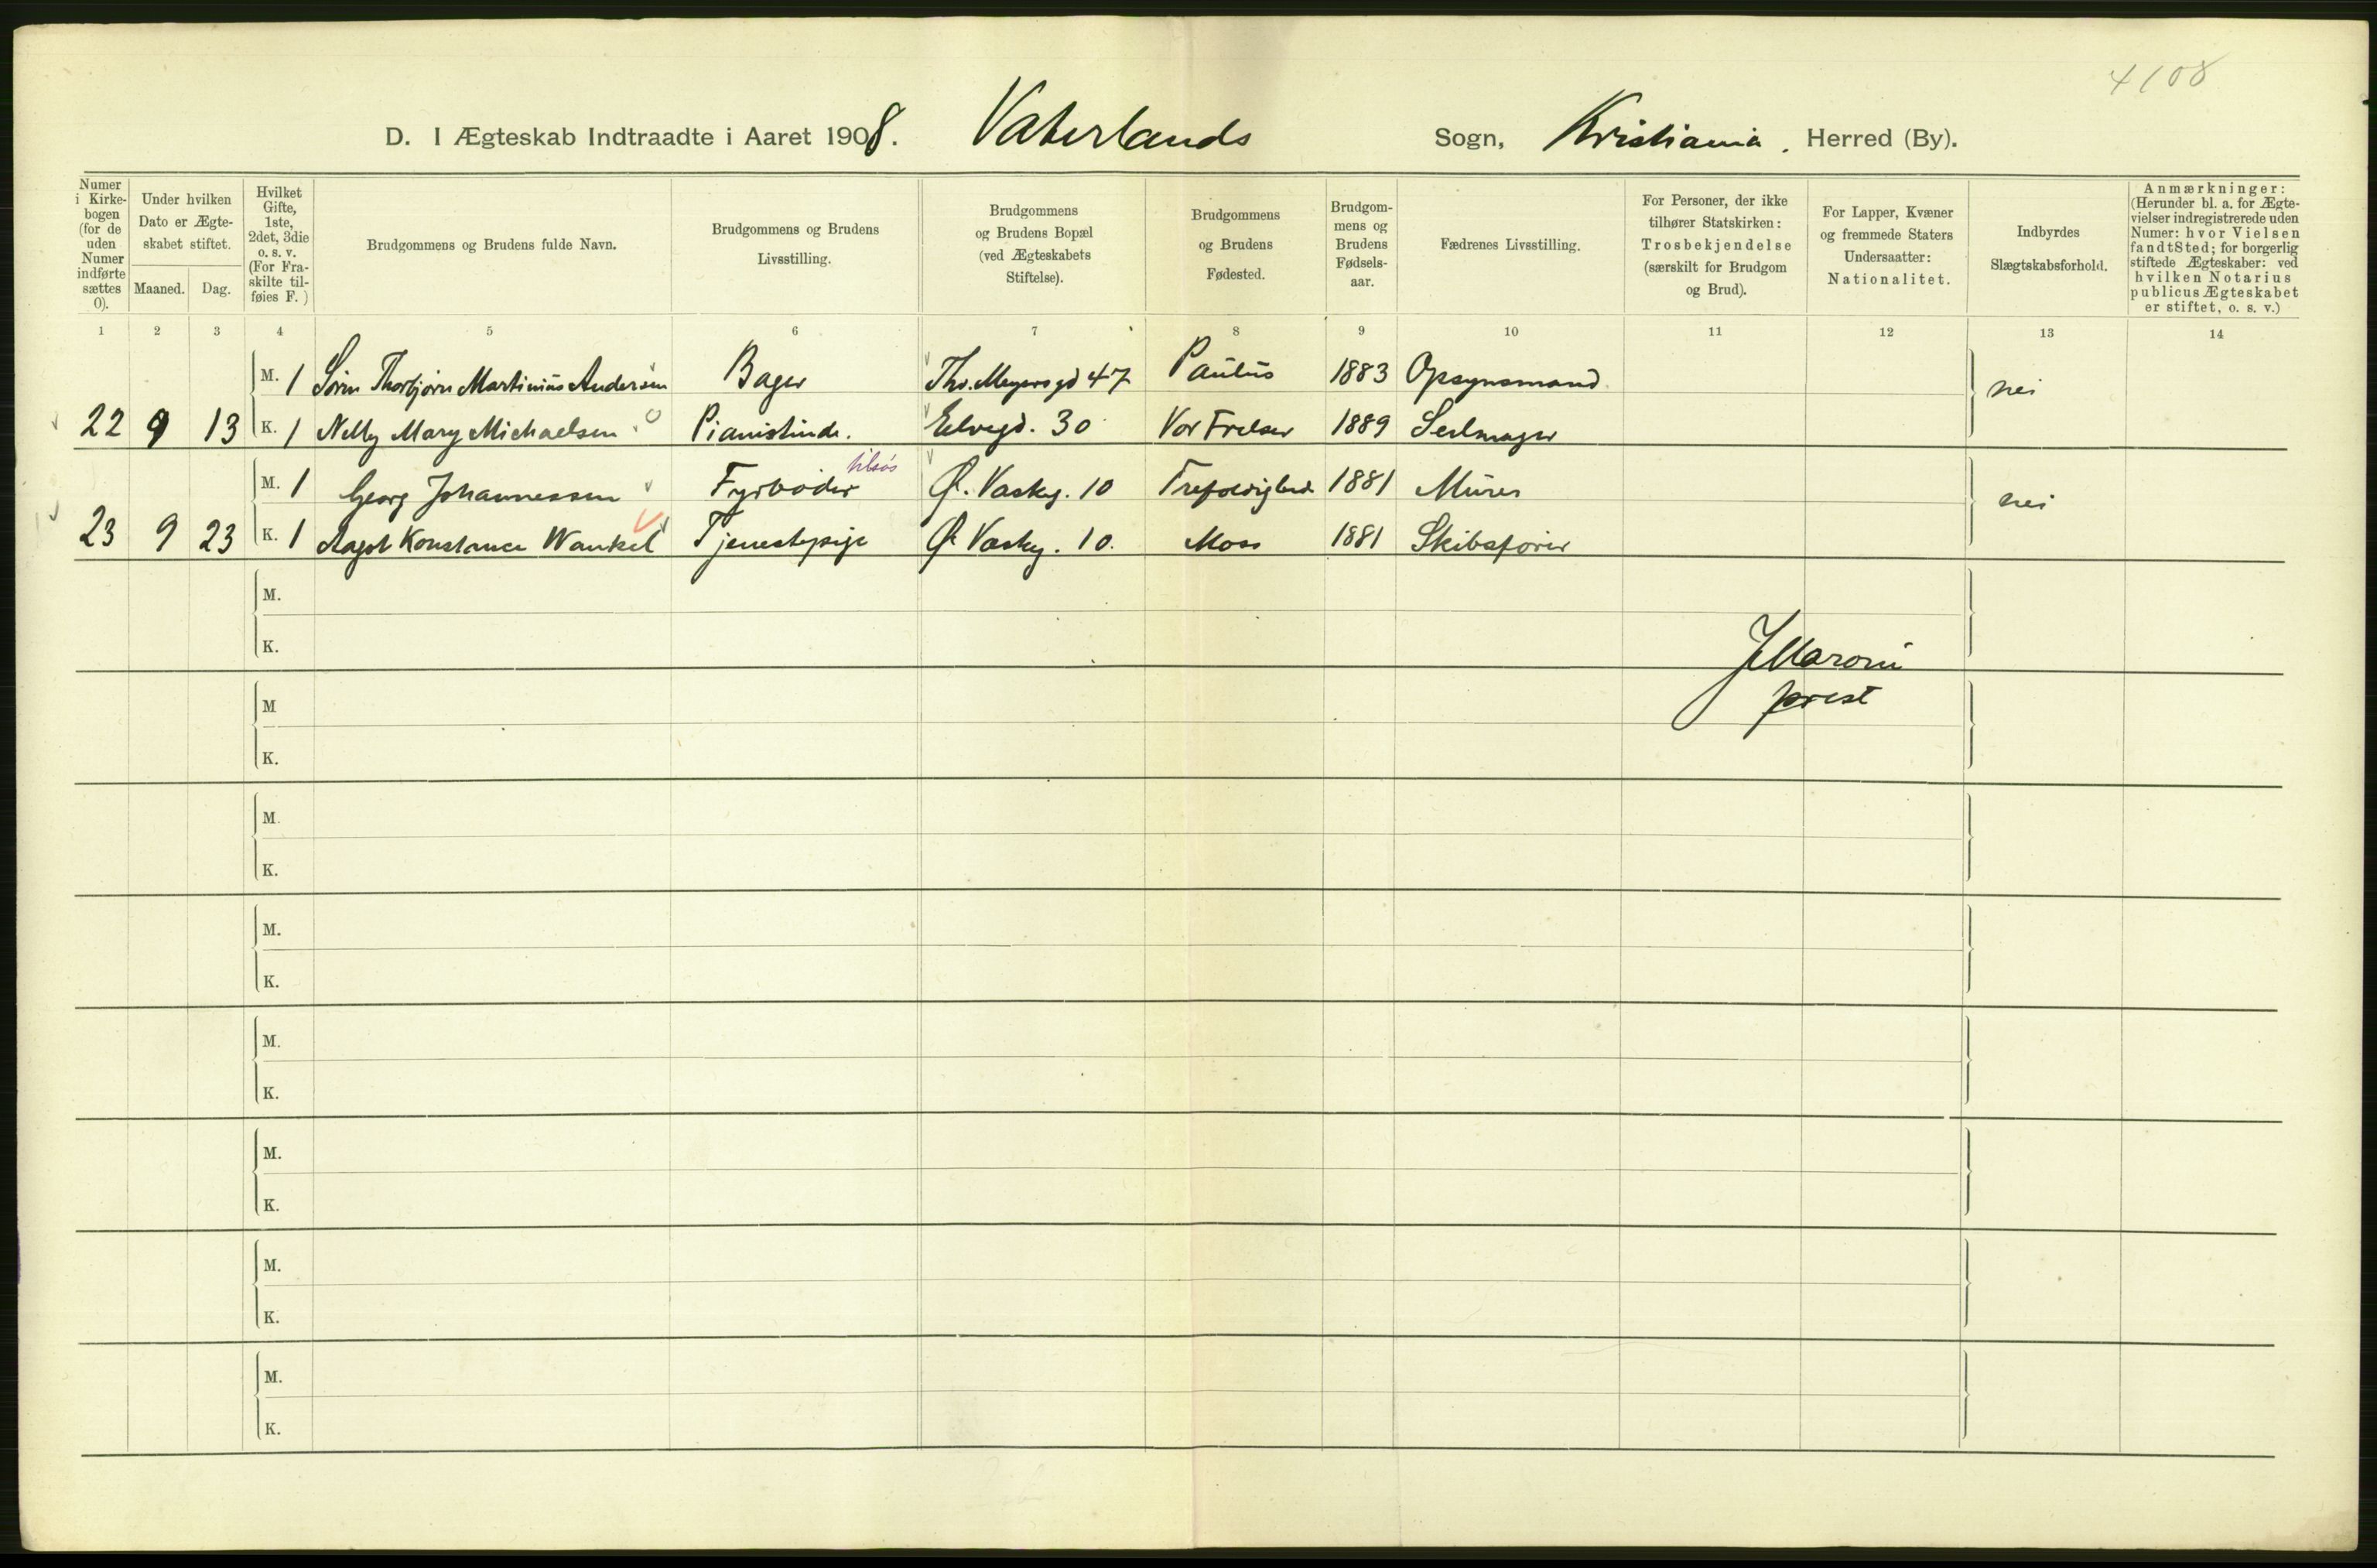 4108
D. I Ægteskab Indtraadte i Aaret 1908. Vaterlands Sogn, Kristiania. Herred (By).
Numer i Kirkebogen (for de uden Numer indførte sættes 0).
Under hvilken Dato er Ægteskabet stiftet.
Maaned. Dag.
Hvilket Gifte, 1ste, 2det, 3die o. s. v. (For Fraskilte tilføies F.)
Brudgommens og Brudens fulde Navn.
Brudgommens og Brudens Livsstilling.
Brudgommens og Brudens Bopæl (ved Ægteskabets Stiftelse).
Brudgommens og Brudens Fødested.
Brudgommens og Brudens Fødselsaar.
Fædrenes Livsstilling.
For Personer, der ikke tilhører Statskirken: Trosbekjendelse (særskilt for Brudgom og Brud).
For Lapper, Kvæner og fremmede Staters Undersaatter: Nationalitet.
Indbyrdes Slægtskabsforhold.
Anmærkninger: (Herunder bl. a. for Ægtevielser indregistrerede uden Numer: hvor Vielsen fandt Sted; for borgerlig stiftede Ægteskaber: ved hvilken Notarius publicus Ægteskabet er stiftet, o. s. v.)
1 2 3 4 5 6 7 8 9 10 11 12 13 14
M. 1 Sørin Thorbjørn Martinius Andersen Bager Th. Meyersgd 47 Paulus 1883 Opsynsmand nei
22 9 13 K. 1 Nelly Mary Michaelsen Pianistinde. Elvegd. 30 Vor Frelser 1889 Seilmager
tilsøs
M. 1 Georg Johannessen Fyrbøder Ø. Vaskeg. 10 Trefoldighed 1881 Murer nei
23 9 23 K. 1 Konstance Wankel Tjenestepige Ø. Vaskeg. 10. Moss 1881 Skibsfører
M.
K.
J Maroni
prest
M
K.
M.
K.
M.
K.
M.
K.
M.
K.
M.
K.
M.
K.